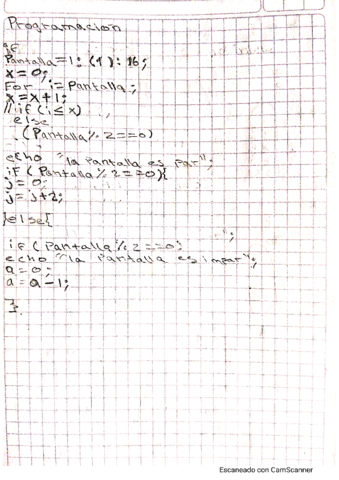 Programación
if
Pantalla=1:(1):16;
x=0;
For i=Pantalla;
x=x+1;
//if(i≤x)
else
(Pantalla%2==0)
echo "la Pantalla es par";
if(Pantalla%2==0){
j=0;
j=j+2;
}else{
";
if(Pantalla%2==0)
echo "la Pantalla es impar";
a=0;
a=a-1;
}
Escaneado con CamScanner